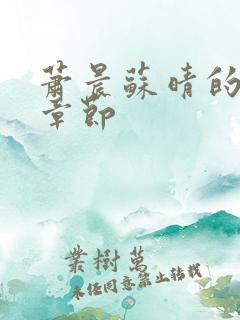 萧晨蘇晴的
章節
業樹萬
未经同意禁止转载